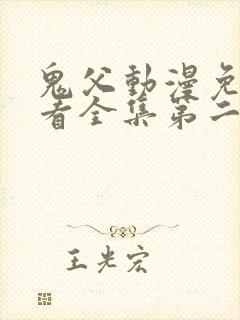 鬼父動漫免
看全集第二
王光宏